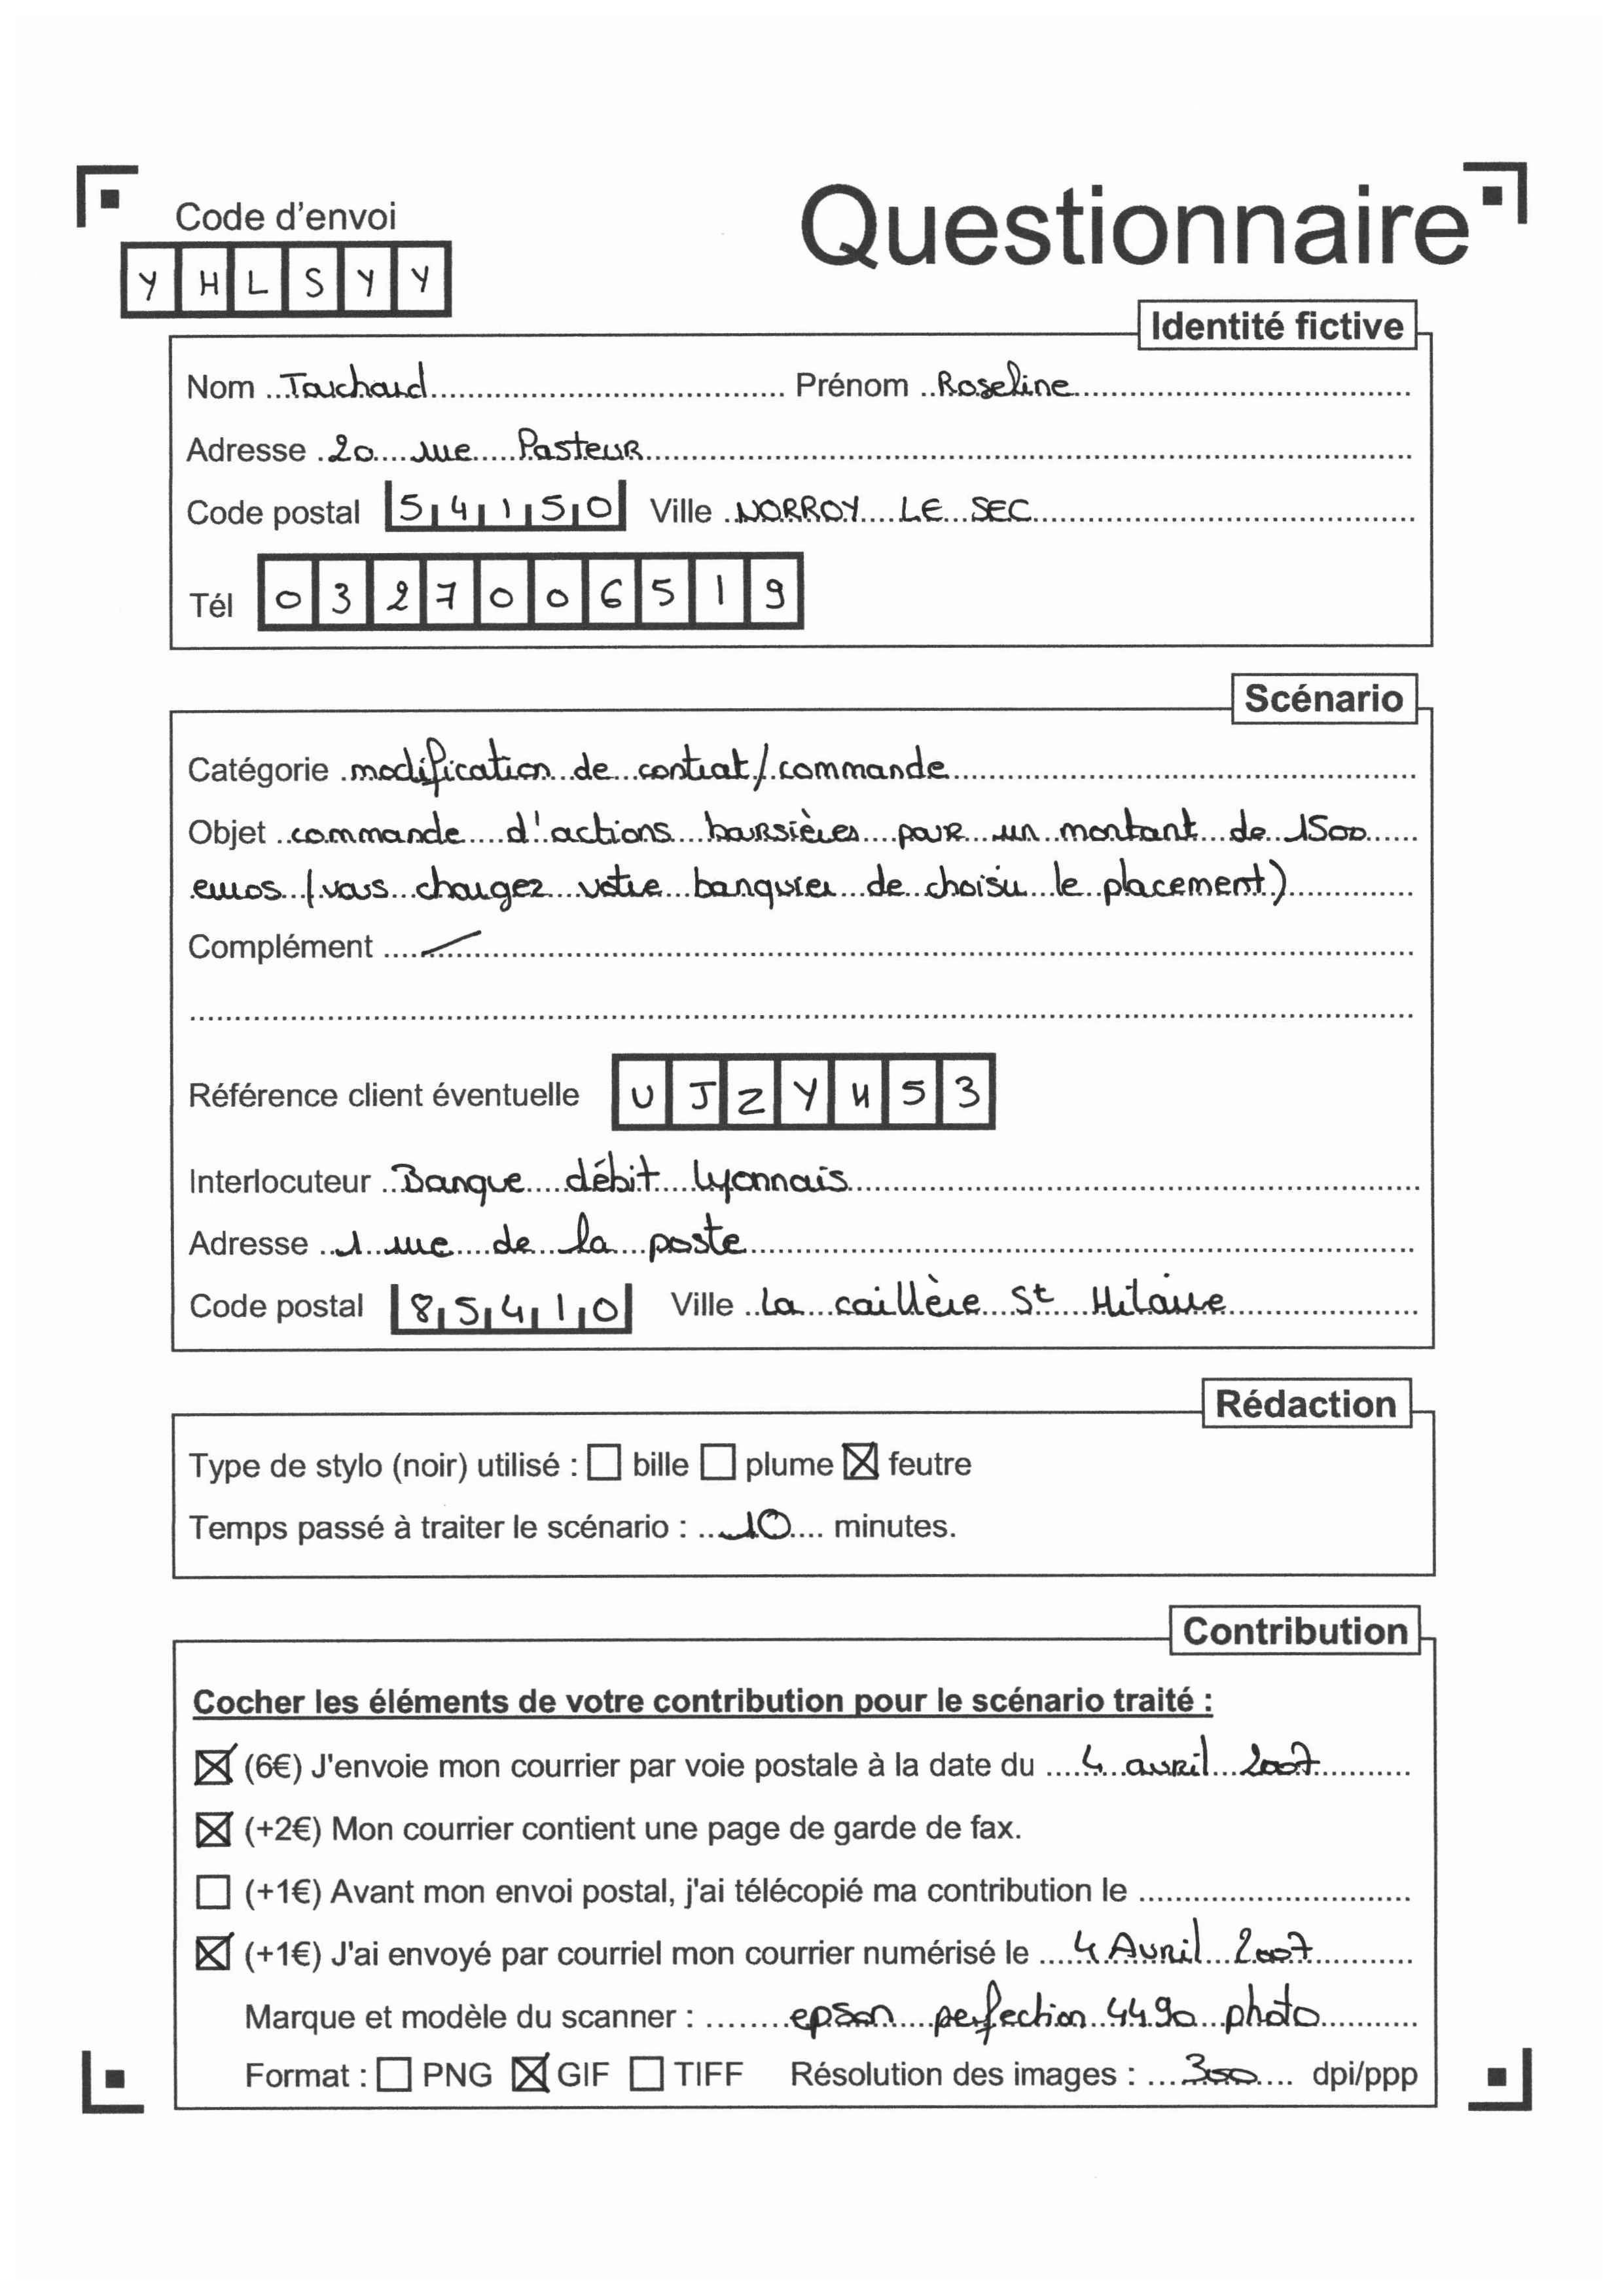 Questionnaire
Code d'envoi
Y H L S Y Y
Identité fictive
Nom Tarchard Prénom Roseline
Adresse 20 rue Pasteur
Code postal 54150 Ville NORROY LE SEC
Tél 0327006519
Scénario
Catégorie modification de contrat/commande
Objet commande d'actions boursières pour un montant de 1500
euros (vous chargez votre banquier de choisir le placement)
Complément /
Référence client éventuelle U J Z Y 4 5 3
Interlocuteur Banque débit lyonnais
Adresse 1 rue de la poste
Code postal 85410 Ville La caillère St Hilaire
Rédaction
Type de stylo (noir) utilisé : ☐ bille ☐ plume ☒ feutre
Temps passé à traiter le scénario : 10 minutes.
Contribution
Cocher les éléments de votre contribution pour le scénario traité :
☒ (6€) J'envoie mon courrier par voie postale à la date du 4 avril 2007
☒ (+2€) Mon courrier contient une page de garde de fax.
☐ (+1€) Avant mon envoi postal, j'ai télécopié ma contribution le
☒ (+1€) J'ai envoyé par courriel mon courrier numérisé le 4 Avril 2007
Marque et modèle du scanner : epson perfection 4490 photo
Format : ☐ PNG ☒ GIF ☐ TIFF Résolution des images : 300 dpi/ppp